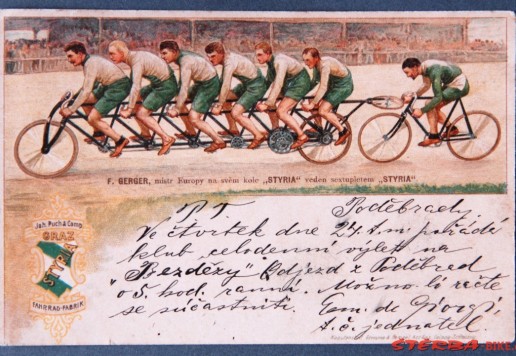 F. BERGER, mistr Europy na svém kole „STYRIA" veden sextupletem „STYRIA".
Joh. Puch & Comp.
GRAZ
STYRIA
FAHRRAD-FABRIK
P. T.
Poděbrady,
Ve čtvrtek dne 24. t. m. pořádá
klub celodenní výlet na
„Bezdězy" Odjezd z Poděbrad
o 5. hod. ranní. Možno-li račte
se súčastniti. Em. de
t. č. jednatel
STERBA BIKE